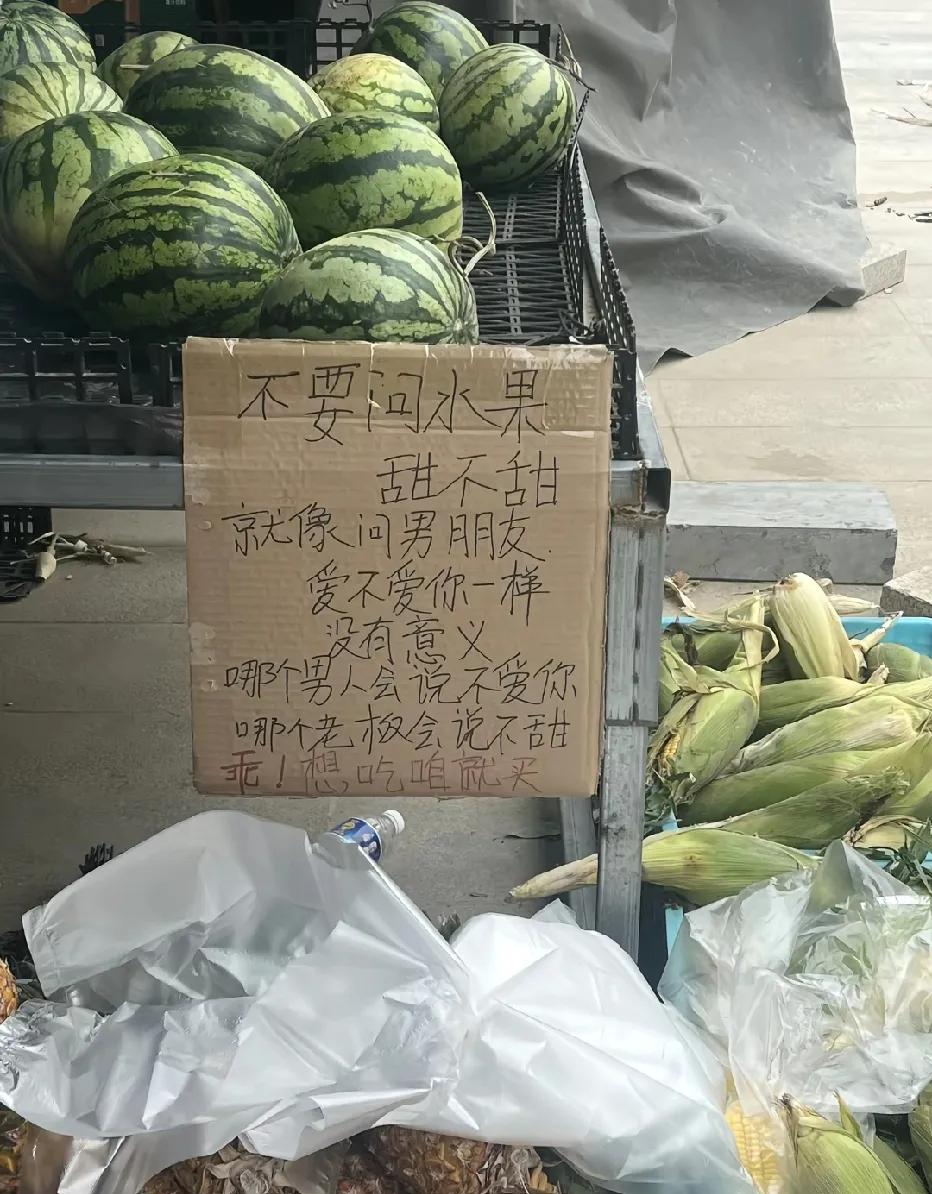 不要问水果
甜不甜
就像问男朋友.
爱不爱你一样
没有意义
哪个男人会说不爱你
哪个老板会说不甜
乖!想,吃咱就买